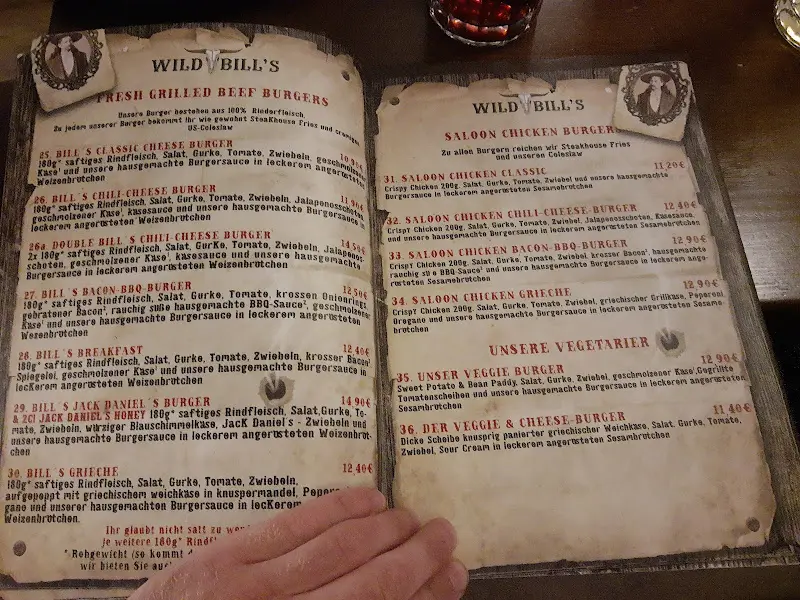 WILD BILL'S
FRESH GRILLED BEEF BURGERS
Unsere Burger bestehen aus 100% Rinderfleisch,
Zu jedem unserer Burger bekommt ihr wie gewohnt Steakhouse Fries und cremigen
US-Coleslaw
25. BILL´S CLASSIC CHEESE BURGER
180g* saftiges Rindfleisch, Salat, Gurke, Tomate, Zwiebeln, geschmolzener
Käse¹ und unsere hausgemachte Burgersauce in leckerem angerösteten
Weizenbrötchen
26. BILL´S CHILI-CHEESE BURGER 11,90€
180g* saftiges Rindfleisch, Salat, Gurke, Tomate, Zwiebeln, Jalapenosschoten,
geschmolzener Käse¹, käsesauce und unsere hausgemachte Burgersauce in
leckerem angerösteten Weizenbrötchen
26a DOUBLE BILL´S CHILI-CHEESE BURGER 14,50€
2x 180g* saftiges Rindfleisch, Salat, Gurke, Tomate, Zwiebeln, Jalapenos-
schoten, geschmolzener Käse¹, käsesauce und unsere hausgemachte
Burgersauce in leckerem angerösteten Weizenbrötchen
27. BILL´S BACON-BBQ-BURGER 12,50€
180g* saftiges Rindfleisch, Salat, Gurke, Tomate, krossen Onionringt
gebratener Bacon², rauchig süße hausgemachte BBQ-Sauce², geschmolzener
Käse¹ und unsere hausgemachte Burgersauce in leckerem angerösteten
Weizenbrötchen
28. BILL´S BREAKFAST 12,40€
180g* saftiges Rindfleisch, Salat, Gurke, Tomate, Zwiebeln, krosser Bacon²
Spiegelei, geschmolzener Käse¹ und unsere hausgemachte Burgersauce in
leckerem angerösteten Weizenbrötchen
29. BILL´S JACK DANIEL´S BURGER 14,90€
& 2Cl JACK DANIEL´S HONEY 180g* saftiges Rindfleisch, Salat,Gurke, To-
mate, Zwiebeln, würziger Blauschimmelkäse, Jack Daniel´s - Zwiebeln und
unsere hausgemachte Burgersauce in leckerem angerösteten Weizenbröt-
chen
30. BILL´S GRIECHE 12,40€
180g* saftiges Rindfleisch, Salat, Gurke, Tomate, Zwiebeln,
aufgepeppt mit griechischem weichkäse in knuspermandel,
gano und unserer hausgemachten Burgersauce in leckerem
Weizenbrötchen.
Ihr glaubt nicht satt zu
je weitere 180g*
* Rohgewicht (so kommt
wir bieten Sie
WILD BILL'S
SALOON CHICKEN BURGER
Zu allen Burgern reichen wir Steakhouse Fries
und unseren Coleslaw
31. SALOON CHICKEN CLASSIC 11,20€
Crispy Chicken 200g, Salat, Gurke, Tomate, Zwiebel und unsere hausgemachte
Burgersauce in leckerem angerösteten Sesambrötchen
32. SALOON CHICKEN CHILI-CHEESE-BURGER 12,40€
Crispy Chicken 200g, Salat, Gurke, Tomate, Zwiebel, Jalapenosschoten, Käsesauce,
und unsere hausgemachte Burgersauce in leckerem angerösteten Sesambrötchen
33. SALOON CHICKEN BACON-BBQ-BURGER 12,90€
Crispy Chicken 200g, Salat, Gurke, Tomate, Zwiebel, krosser Bacon², hausgemachte
rauchig süße BBQ-Sauce² und unsere hausgemachte Burgersauce in leckerem ange-
rösteten Sesambrötchen
34. SALOON CHICKEN GRIECHE 12,90€
Crispy Chicken 200g, Salat, Gurke, Tomate, Zwiebel, griechischer Grillkäse, Peperoni,
Oregano und unsere hausgemachte Burgersauce in leckerem angerösteten Sesam-
brötchen
UNSERE VEGETARIER
35. UNSER VEGGIE BURGER 12,90€
Sweet Potato & Bean Paddy, Salat, Gurke, Zwiebel, geschmolzener Käse¹,Gegrillte
Tomatenscheiben und unsere hausgemachte Burgersauce in leckerem angerösteten
Sesambrötchen
36. DER VEGGIE & CHEESE-BURGER 11,40€
Dicke Scheibe knusprig panierter griechischer Weichkäse, Salat, Gurke, Tomate,
Zwiebel, Sour Cream in leckerem angerösteten Sesambrötchen